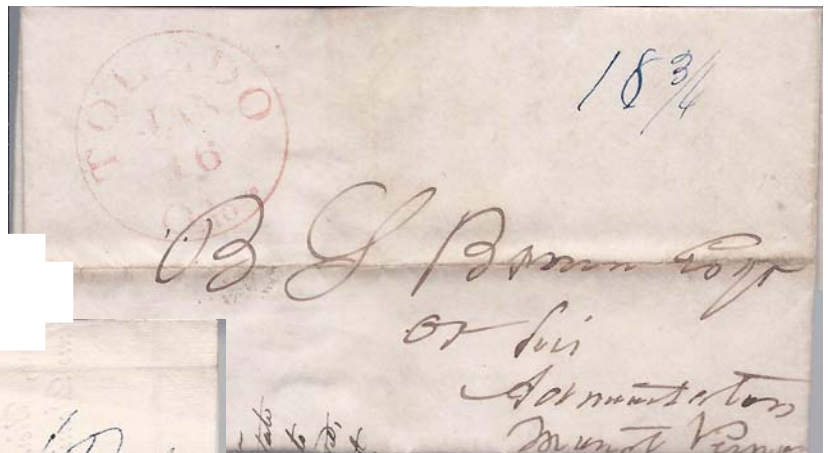 TOLEDO
JAN
16
Ohio.
18 3/4
B S Brown Esqr
or his
Administrators
Mount Vernon
to